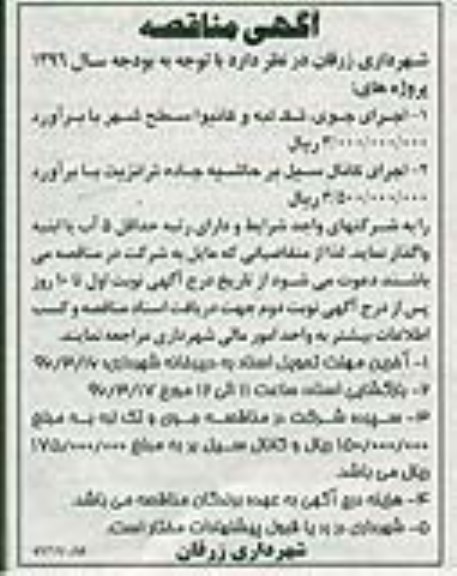 آگهی مناقصه
شهرداری زرقان در نظر دارد با توجه به بودجه سال ۱۳۹۶
پروژه های:
۱- اجرای جوی، تک لبه و کانیوا سطح شهر با برآورد
۳/۰۰۰/۰۰۰/۰۰۰ ریال
۲- اجرای کانال سیل بر حاشیه جاده ترانزیت با برآورد
۳/۵۰۰/۰۰۰/۰۰۰ ریال
را به شرکتهای واجد شرایط و دارای رتبه حداقل ۵ آب یا ابنیه
واگذار نماید. لذا از متقاضیانی که مایل به شرکت در مناقصه می
باشند دعوت می شود از تاریخ درج آگهی نوبت اول تا ۱۰ روز
پس از درج آگهی نوبت دوم جهت دریافت اسناد مناقصه و کسب
اطلاعات بیشتر به واحد امور مالی شهرداری مراجعه نمایند.
۱- آخرین مهلت تحویل اسناد به دبیرخانه شهرداری:
۲- بازگشایی اسناد: ساعت ۱۱ الی ۱۲ مورخ
۳- سپرده شرکت در مناقصه جوی و تک لبه به مبلغ
۱۵۰/۰۰۰/۰۰۰ ریال و کانال سیل بر به مبلغ ۱۷۵/۰۰۰/۰۰۰
ریال می باشد.
۴- هزینه درج آگهی به عهده برندگان مناقصه می باشد.
۵- شهرداری در رد یا قبول پیشنهادات مختار است.
شهرداری زرقان